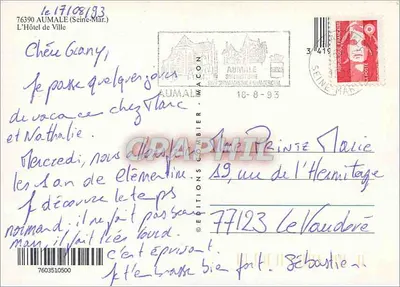 le 17/08/93
76390 AUMALE (Seine-Mar.)
L'Hôtel de Ville
Chère Grany,
Je passe quelques jours
de vacance chez Marc
et Nathalie.
Mercredi, nous
les 1 an de Clémentine.
Je découvre le temps
normand, il ne fait pas beau
mais, il fait très lourd.
c'est épuisant.
Je t'embrasse bien fort. Sébastien.
7603510500
© EDITIONS COMBIER - MACON
AUMALE
AUMALE
18-8-93
3 419
SEINE MAR
CPAPHTIL
Me PRINTÉ Marie
19, rue de l'Hermitage
77123 Le Vaudoué